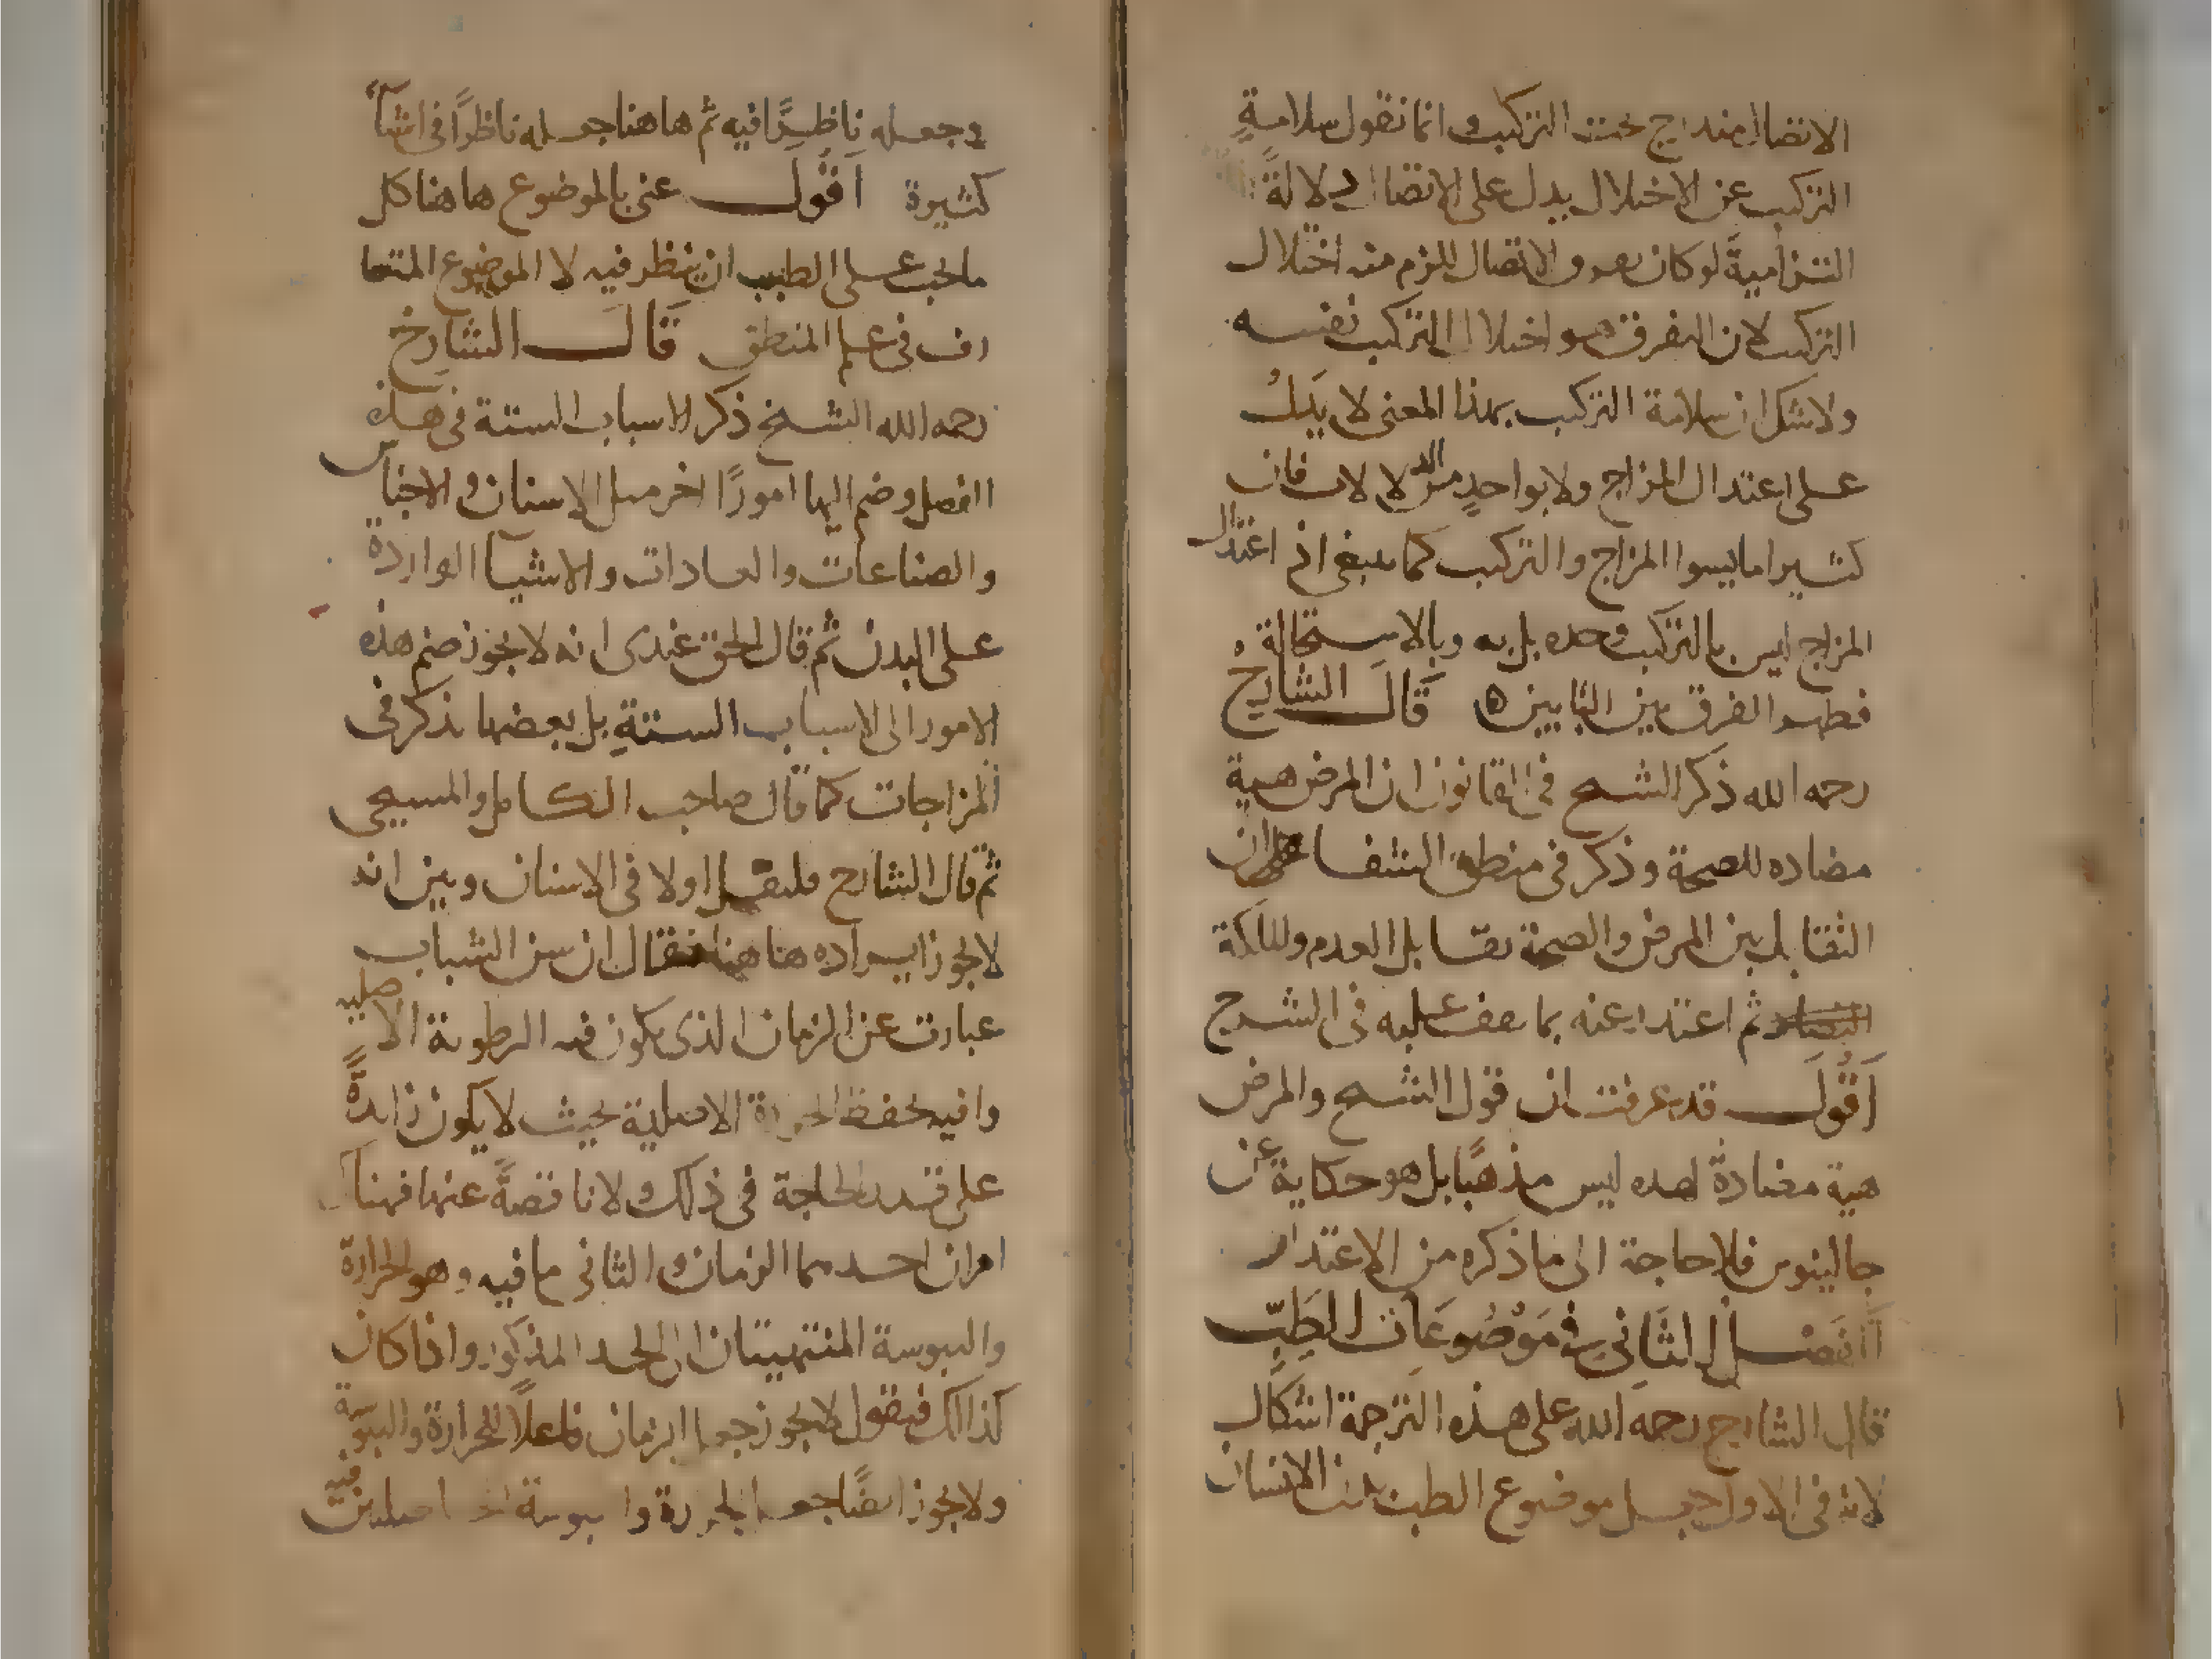 الاتصال مندرج تحت التركيب وانما نقول سلامةِ
التركيب عن الاختلال يدل على الاتصال دلالةً
التزاميةً لو كان تفرق الاتصال للزم منه اختلال
التركيب لان التفرق هو اختلال التركيب نفسه
ولا شك ان سلامة التركيب بهذا المعنى لا يَدلُ
على اعتدال المزاج ولا بواحدٍ من الدلالات فان
كثيرا ما يسوا المزاج والتركيب كما ينبغي اذ اعتدال
المزاج ليس بالتركيب وحده بل به وبالاستحالة
فظهر الفرق بين البابين ه قَالَ الشارح
رحمه الله ذكر الشيخ في القانون ان المرض هيية
مضاده للصحة وذكر في منطق الشفا ان
التقابل بين المرض والصحة تقابل العدم والملكة
ثم اعتذر عنه بما تقف عليه في الشرح
اَقُولَ قد عرفت ان قول الشيخ والمرض
هية مضادةٌ لهده ليس مذهبًا بل هو حكاية عن
جالينوس فلا حاجة الى ما ذكره من الاعتذار
اَلفَصْل الثَّاني في مَوْضُوعَات الطِبِّ
قال الشارح رحمه الله على هذه الترجمة اشكال
لانه في الاول جعل موضوع الطب بدن الانسان
وجعله نَاظِرًا فيه ثم هاهنا جعله ناظرًا في اشيآء
كثيرة اَقُولَ عنى بالموضوع هاهنا كل
ما يجب على الطبيب ان ينظر فيه لا الموضوع المتعا
رف في علم المنطق قَالَ الشَارِح
رحمه الله الشيخ ذكر الاسباب الستة في هذه
الفصل وضم اليها امورًا اخر مثل الاسنان والاجناس
والصناعات والعادات والاشيآ الواردة
على البدن ثم قال الحق عندى انه لا يجوز ضم هذه
الامور الى الاسباب الستةِ بل بعضها يذكر في
المزاجات كما قال صاحب الكامل والمسيحى
ثم قال الشارح فلنقل اولا في الاسنان وبين انه
لا يجوز ايراده هاهنا فقال ان سن الشباب
عبارت عن الزمان الذى يكون فيه الرطوبة الاصليه
وافيه بحفظ الحرارة الاصلية بحيث لا يكون زايدةً
على قدر الحاجة في ذلك ولا ناقصةً عنها فهنا
امران احدهما الزمان والثاني ما فيه وهو الحرارة
واليبوسة المنتهيتان الى الحد المذكور واذا كان
كذالك فيقول لا يجوز جعل الزمان فاعلاً للحرارة واليبوسة
ولا يجوز ايضًا جعل الحرارة واليبوسة الحاصلين فيه